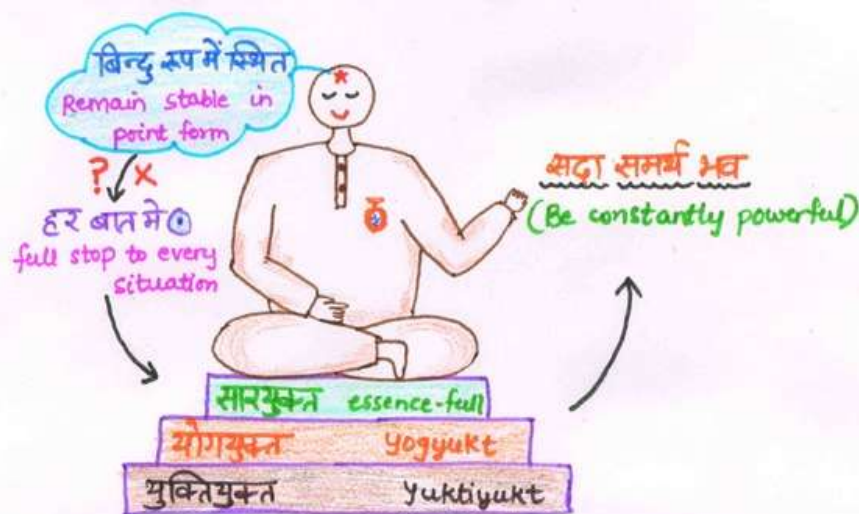 बिन्दु रूप में स्थित
Remain stable in
point form
? x
हर बात मे
full stop to every
situation
सदा समर्थ भव
(Be constantly powerful)
सारयुक्त essence-full
योगयुक्त Yogyukt
युक्तियुक्त Yuktiyukt